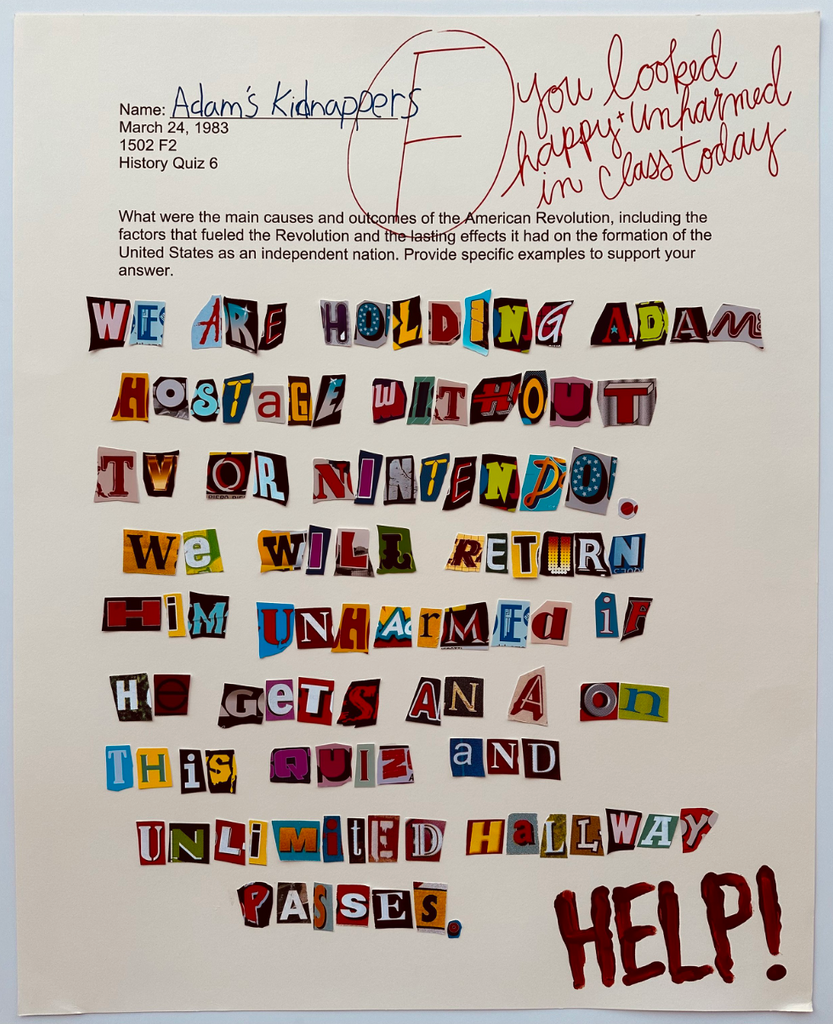 Name: Adam's Kidnappers
March 24, 1983
1502 F2
History Quiz 6
F
You looked
happy + unharmed
in class today
What were the main causes and outcomes of the American Revolution, including the
factors that fueled the Revolution and the lasting effects it had on the formation of the
United States as an independent nation. Provide specific examples to support your
answer.
WE ARE HOLDING ADAM
HOSTaGE WITHOUT
TV OR NINTENDO.
We WILL RETURN
HiM UNHARrMEd iF
He GETS AN A On
THiS QUIZ aND
UNLiMitED HaLLWAY
PASSES.
HELP!